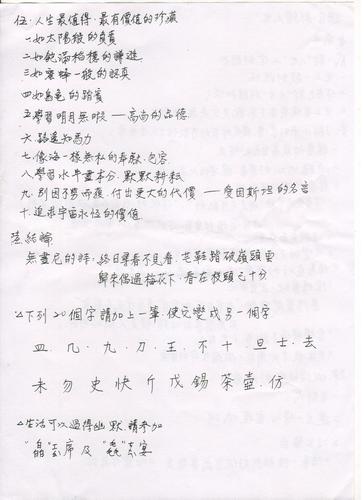 伍、人生最值得、最有價值的珍藏
一.如太陽般的真實
二.如飽滿稻穗的謙遜
三.如蜜蜂一般的認真
四.如烏龜的踏實
五.學習明月無暇——高尚的品德
六.路遙知馬力
七.像海一樣無私的奉獻.包容
八.學習水牛盡本分.默默耕耘
九.別因不勞而獲.付出更大的代價——愛因斯坦的名言
十.追求宇宙永恆的價值
陸.結論
無盡尼的詩.終日尋春不見春.芒鞋踏破嶺頭雲
歸來偶過梅花下.春在枝頭已十分
△下列20個字請加上一筆.使它變成另一個字
皿.几.九.刀.王.不.十.旦.士.去
未.勿.史.快.斤.戊.錫.茶.壺.仿
△生活可以過得幽默.請參加
"晶"去席及"毳"去宴